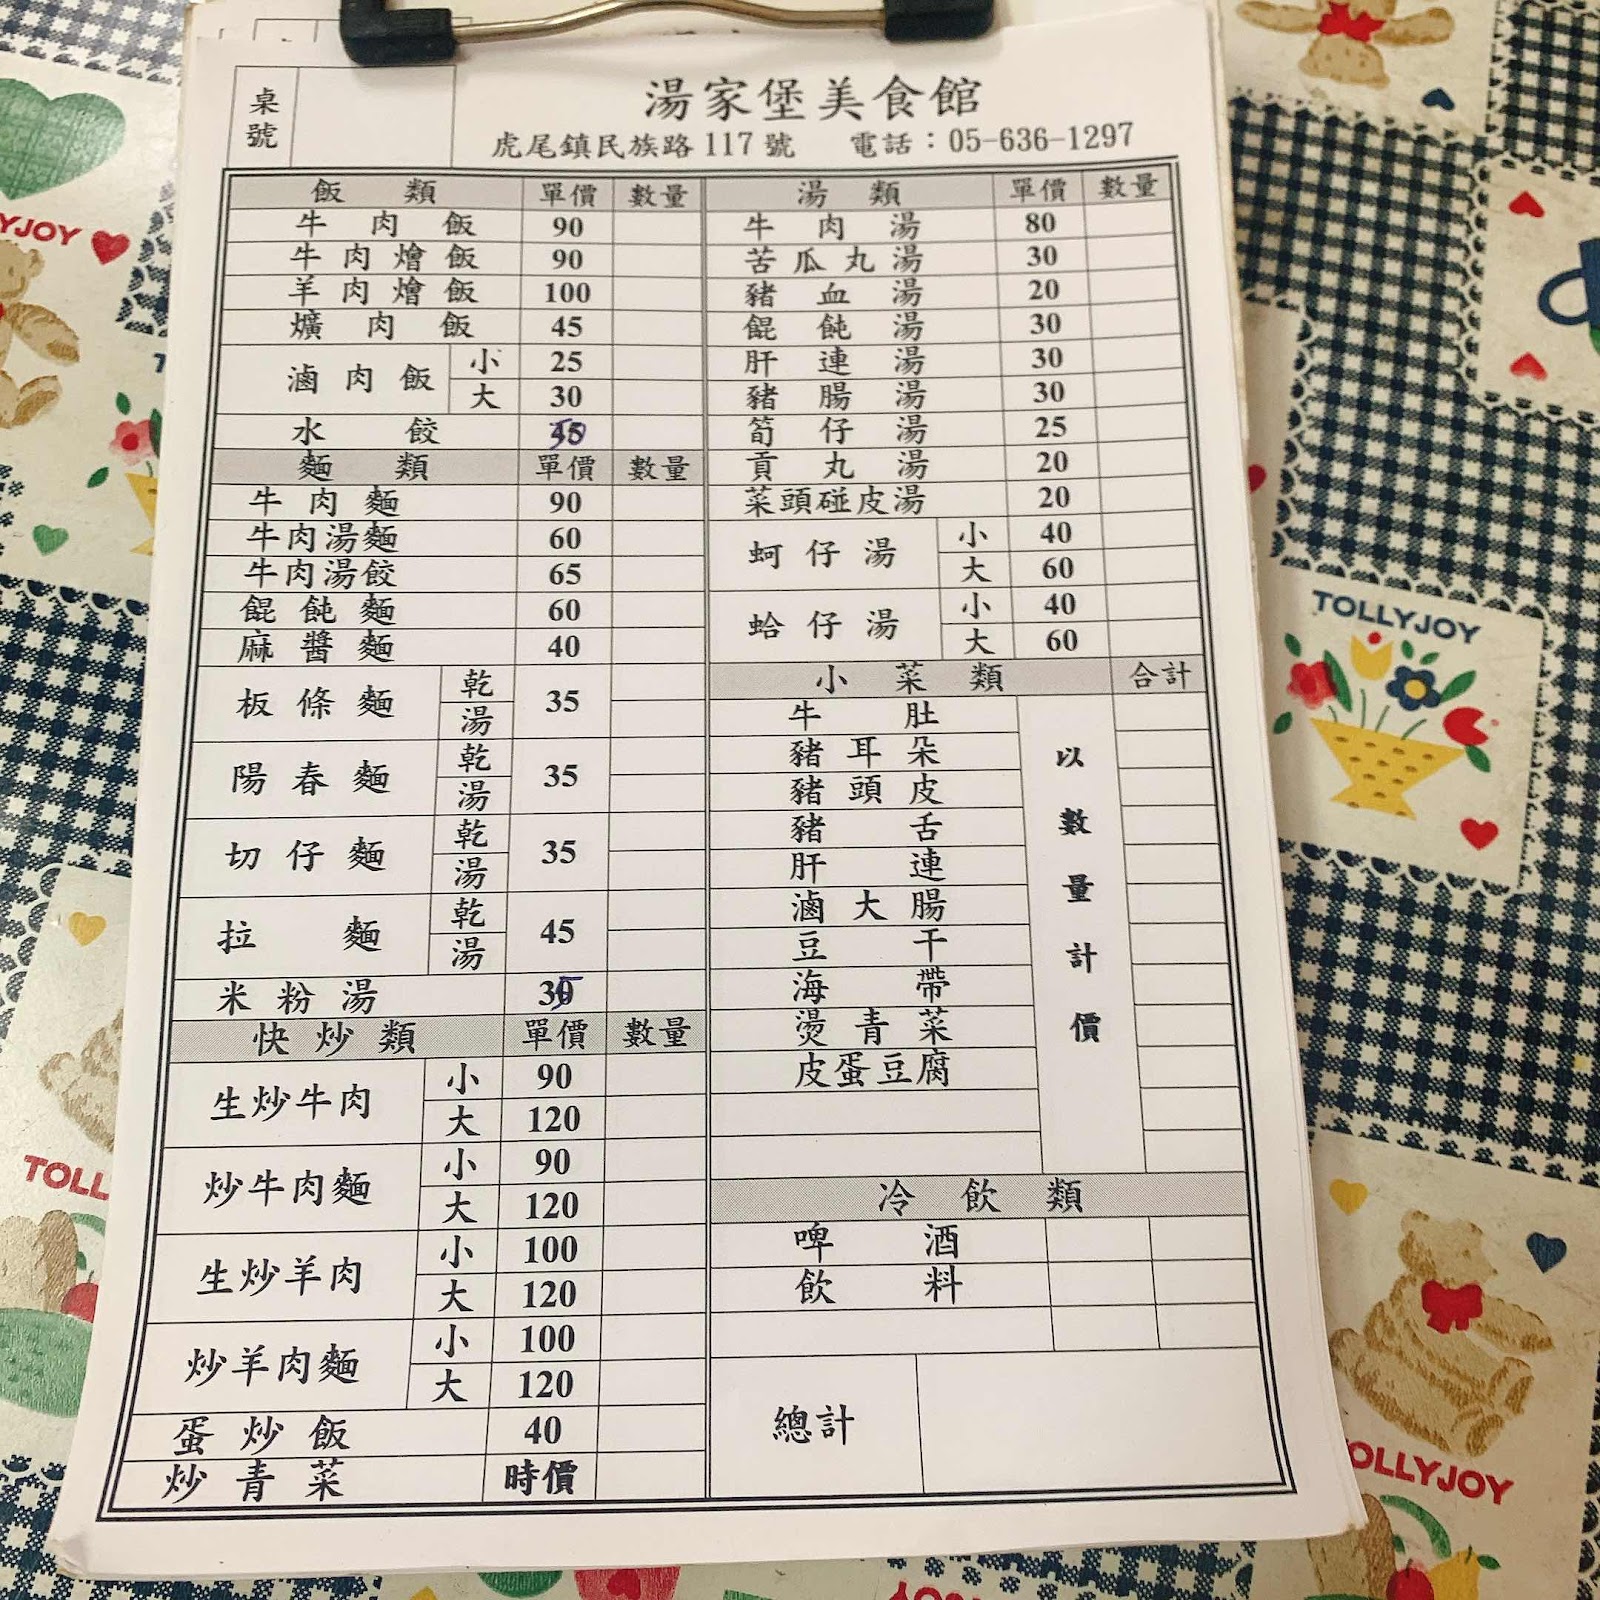 桌號
湯家堡美食館
虎尾鎮民族路117號 電話：05-636-1297
飯類 單價 數量
牛肉飯 90
牛肉燴飯 90
羊肉燴飯 100
爌肉飯 45
滷肉飯 小 25
大 30
水餃
麵類 單價 數量
牛肉麵 90
牛肉湯麵 60
牛肉湯餃 65
餛飩麵 60
麻醬麵 40
板條麵 乾 湯 35
陽春麵 乾 湯 35
切仔麵 乾 湯 35
拉麵 乾 湯 45
米粉湯
快炒類 單價 數量
生炒牛肉 小 90
大 120
炒牛肉麵 小 90
大 120
生炒羊肉 小 100
大 120
炒羊肉麵 小 100
大 120
蛋炒飯 40
炒青菜 時價
湯類 單價 數量
牛肉湯 80
苦瓜丸湯 30
豬血湯 20
餛飩湯 30
肝連湯 30
豬腸湯 30
筍仔湯 25
貢丸湯 20
菜頭碰皮湯 20
蚵仔湯 小 40
大 60
蛤仔湯 小 40
大 60
小菜類 合計
牛肚
豬耳朵
豬頭皮
豬舌
肝連
滷大腸
豆干
海帶
燙青菜
皮蛋豆腐
以數量計價
冷飲類
啤酒
飲料
總計
TOLLYJOY
YJOY
TOLL
OLLYJOY